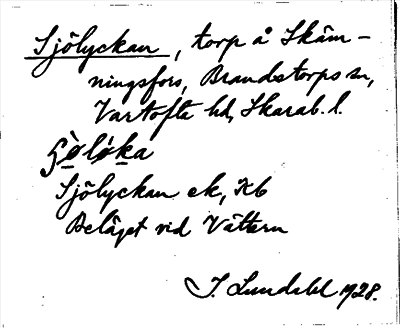 Sjölyckan, torp å Skäm-
ningsfors, Brandstorps sn,
Vartofta hd, Skarab. l.
Sjölyckan ek, Kb
Beläget vid Vättern
1928.